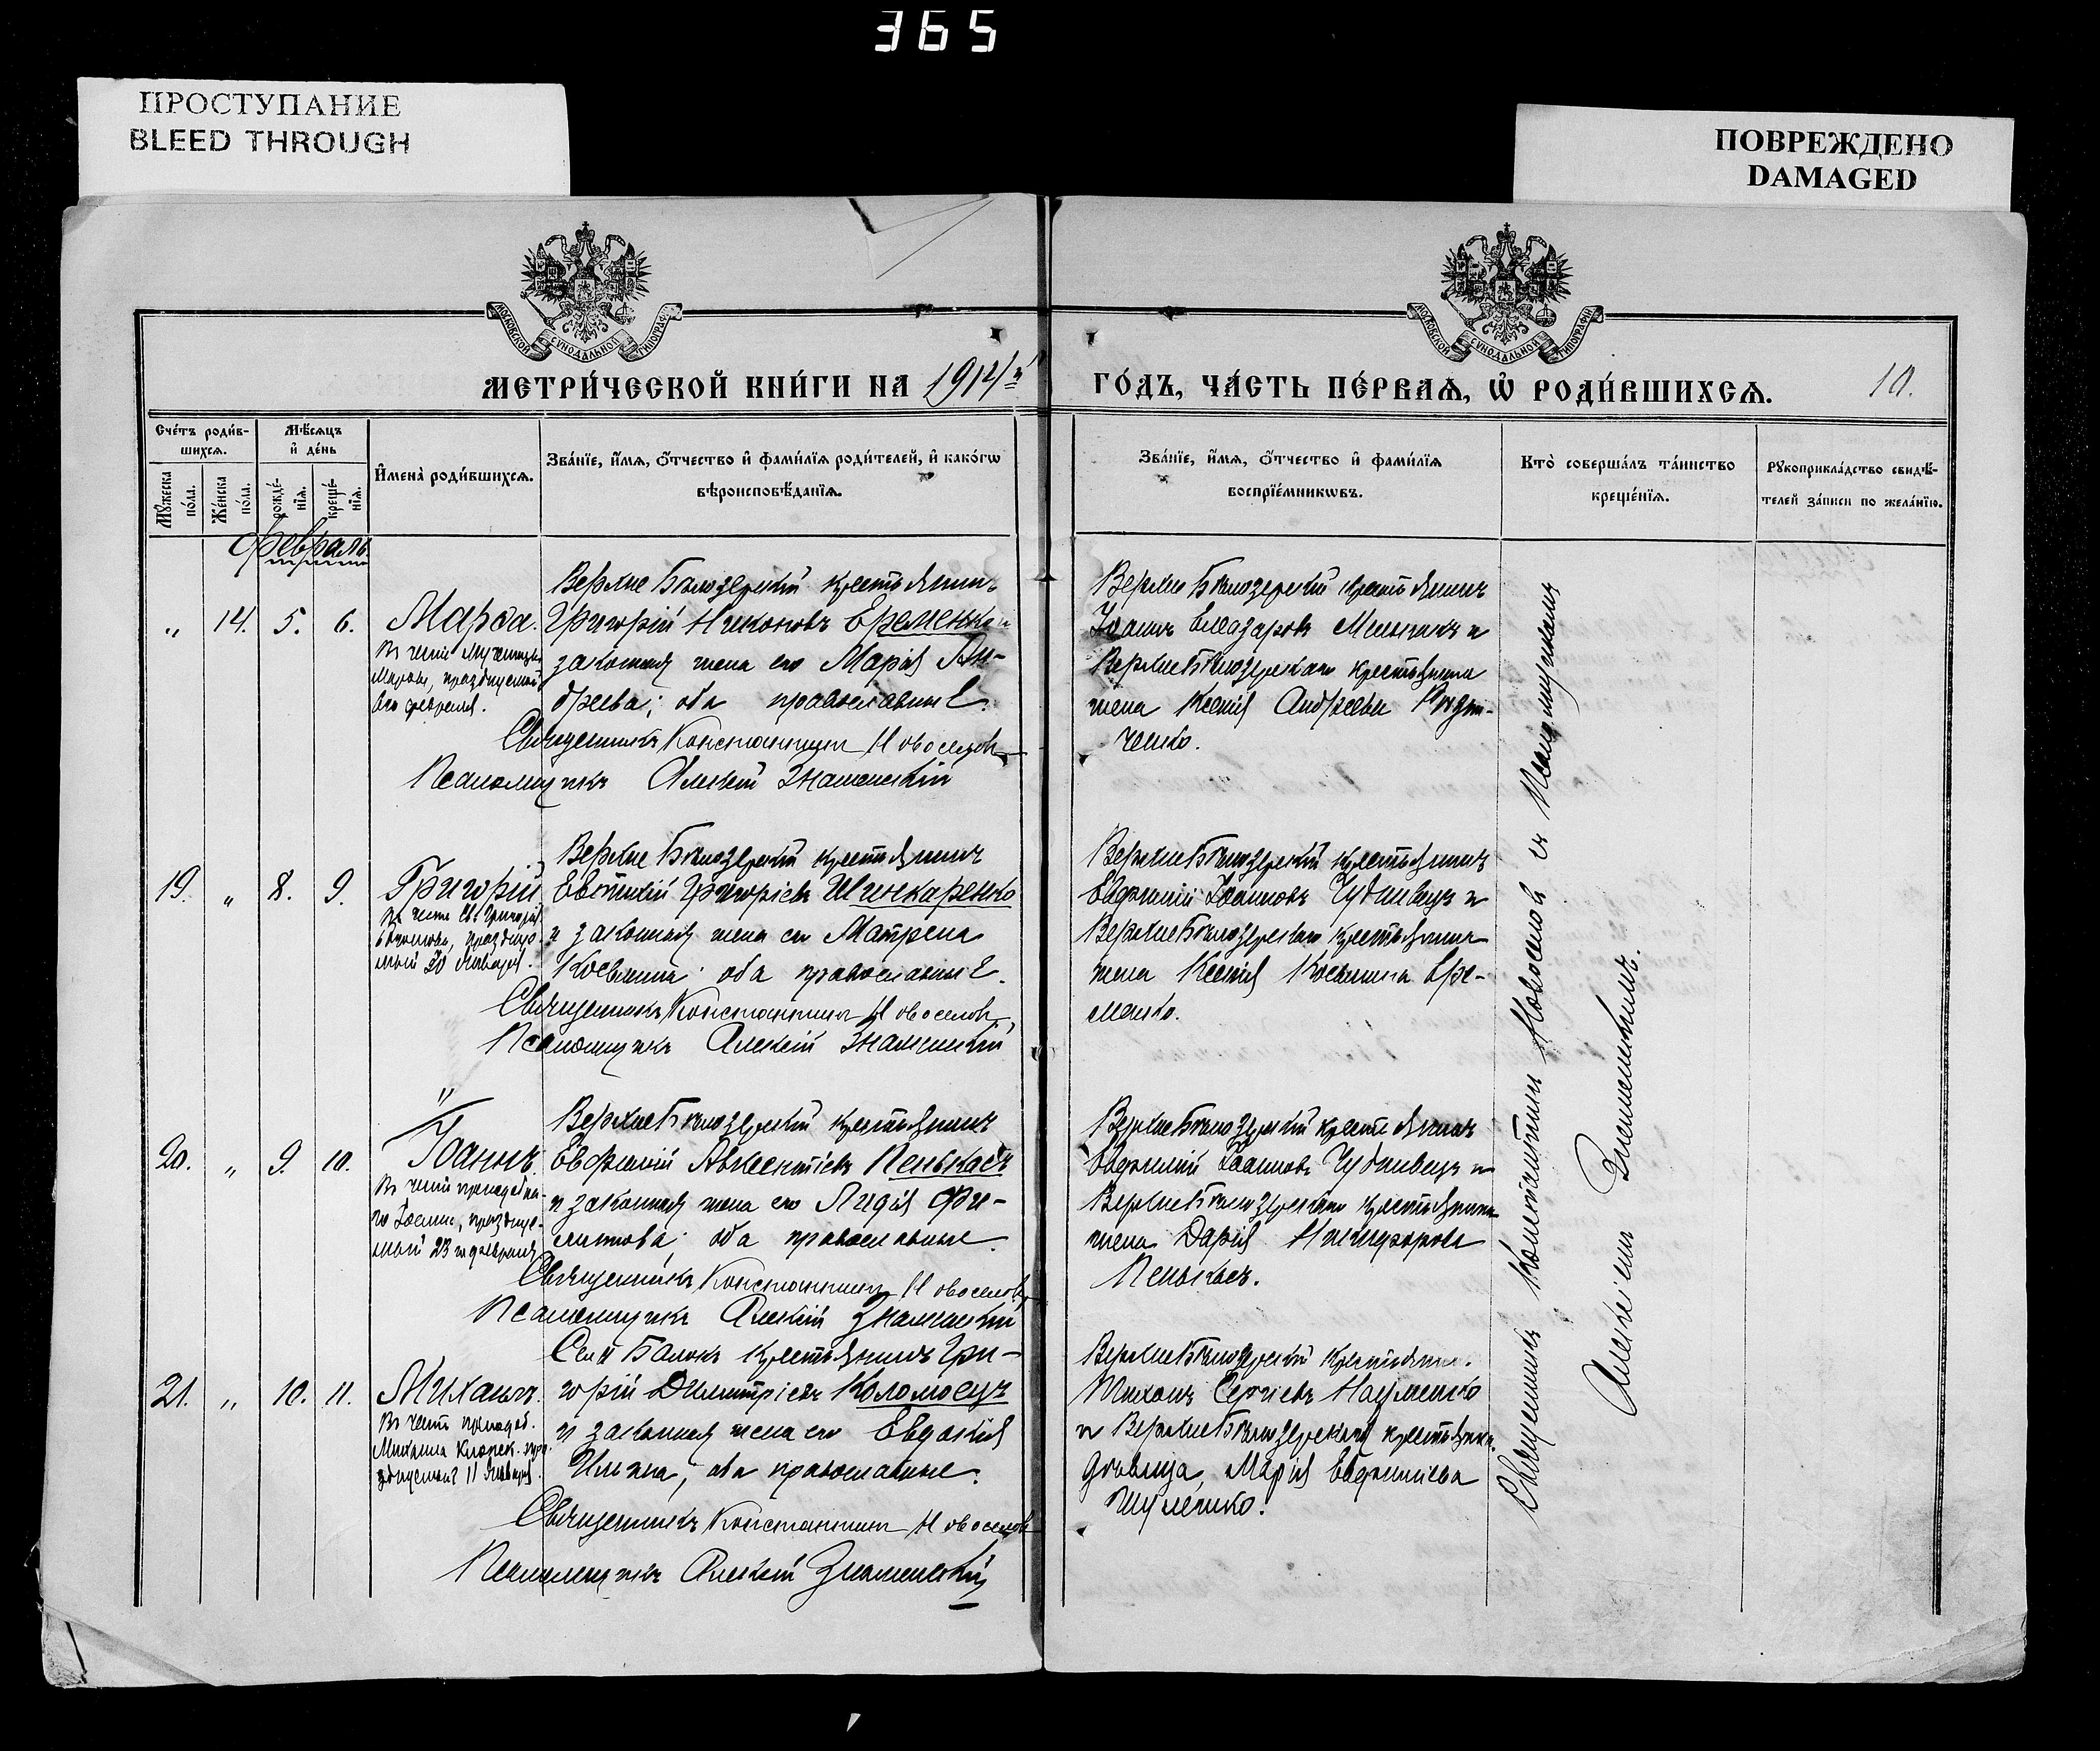 365
ПРОСТУПАНИЕ
BLEED THROUGH
ПОВРЕЖДЕНО
DAMAGED
МОСКОВСКОЙ СУНОДАЛЬНОЙ ТИПОГРАФІИ
МОСКОВСКОЙ СУНОДАЛЬНОЙ ТИПОГРАФІИ
МЕТРИ́ЧЕСКОЙ КНИ́ГИ НА 1914й
ГО́ДЪ, ЧА́СТЬ ПЕ́РВАѦ, Ѽ РОДИ́ВШИХСѦ.
10.
Сче́тъ роди́в-
шихсѧ.
Мѣ́сѧцъ
и҆ де́нь
Мꙋ́жеска
по́ла.
Же́нска
по́ла.
рожде́-
нїѧ.
креще́-
нїѧ.
И҆мена̀ роди́вшихсѧ.
Зва́нїе, и҆́мѧ, ѻ҆́тчество и҆ фами́лїѧ роди́телей, и҆ како́гѡ
вѣроисповѣ́данїѧ.
Зва́нїе, и҆́мѧ, ѻ҆́тчество и҆ фами́лїѧ
воспрїе́мникѡвъ.
Кто̀ соверша́лъ та́инство
креще́нїѧ.
Рꙋкоприкла́дство свидѣ́-
телей за́писи по жела́нїю.
Февраль
„ 14. 5. 6.
Марѳа.
Въ честь мученицы
Марѳы, празднуемой
6го февраля.
Верхне Бѣлозерскій крестьянинъ
Григорій Никоновъ Еременко и
законная жена его Марія Ан-
дреева; оба православные.
Священникъ Константинъ Новоселовъ
Псаломщикъ Алексій Знаменскій
Верхне Бѣлозерскій крестьянинъ
Іоаннъ Елеазаровъ Мельникъ и
Верхне Бѣлозерскаго крестьянина
жена Ксенія Андреева
ченко.
19. „ 8. 9.
Григорій
Въ честь Св. Григорія
Богослова, праздну-
мый 30 Января.
Верхне Бѣлозерскій крестьянинъ
Евѳимій Григорьевъ Шинкаренко
и законная жена его Матрена
Косьмина; оба православные.
Священникъ Константинъ Новоселовъ
Псаломщикъ Алексій Знаменскій
Верхне Бѣлозерскій крестьянинъ
Евѳимій Іоанновъ Чудновецъ и
Верхне Бѣлозерскаго крестьянина
жена Ксенія Косьмина Ере-
менко.
20. „ 9. 10.
Іоаннъ
Въ честь преподобна-
го Іоанна, праздну-
мый 23го февраля
Верхне Бѣлозерскій крестьянинъ
Евфимій Авксентіевъ Пенькасъ
и законная жена его Лидія Фи-
липпова; оба православные.
Священникъ Константинъ Новоселовъ
Псаломщикъ Алексій Знаменскій
Верхне Бѣлозерскій крестьянинъ
Евфимій Іоанновъ Чудновецъ и
Верхне Бѣлозерскаго крестьянина
жена Дарія Никифорова
Пенькасъ.
21. „ 10. 11.
Михаилъ.
Въ честь преподоб.
Михаила Клопск. пра-
зднуемаг 11 Января.
Села Балокъ крестьянинъ Гри-
горій Димитріевъ Коломоецъ
и законная жена его Евдокія
Ильина; оба православные.
Священникъ Константинъ Новоселовъ
Псаломщикъ Алексій Знаменскій
Верхне Бѣлозерскій крестьянинъ
Тихонъ Сергіевъ Науменко
и Верхне Бѣлозерская крестьянка
дѣвица, Марія Евфиміева
Шуленко.
Священникъ Константинъ Новоселовъ съ Псаломщикомъ
Алексіемъ Знаменскимъ.